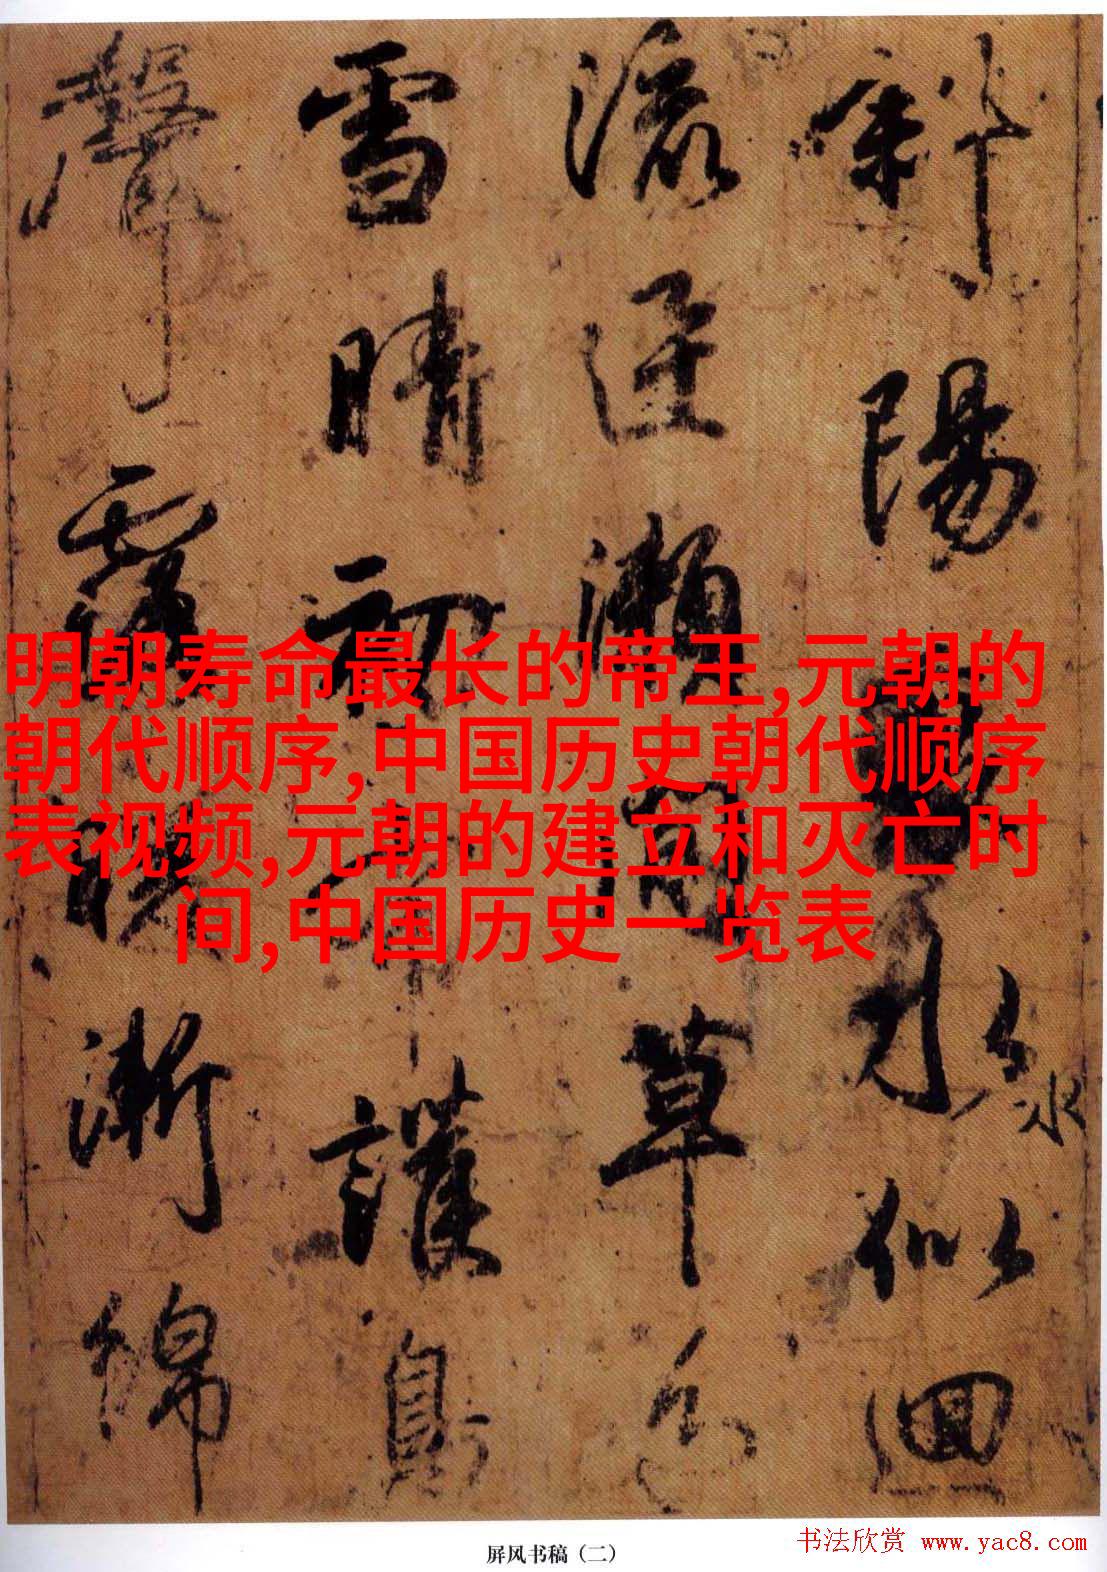 斜陽水似回
水
流逕瀬草色
雪晴初護鳥
聲漸綿
明朝寿命最长的帝王,元朝的
朝代顺序,中国历史朝代顺序
表视频,元朝的建立和灭亡时
间,中国历史一览表
屏风书稿（二）
书法欣赏 www.yac8.com